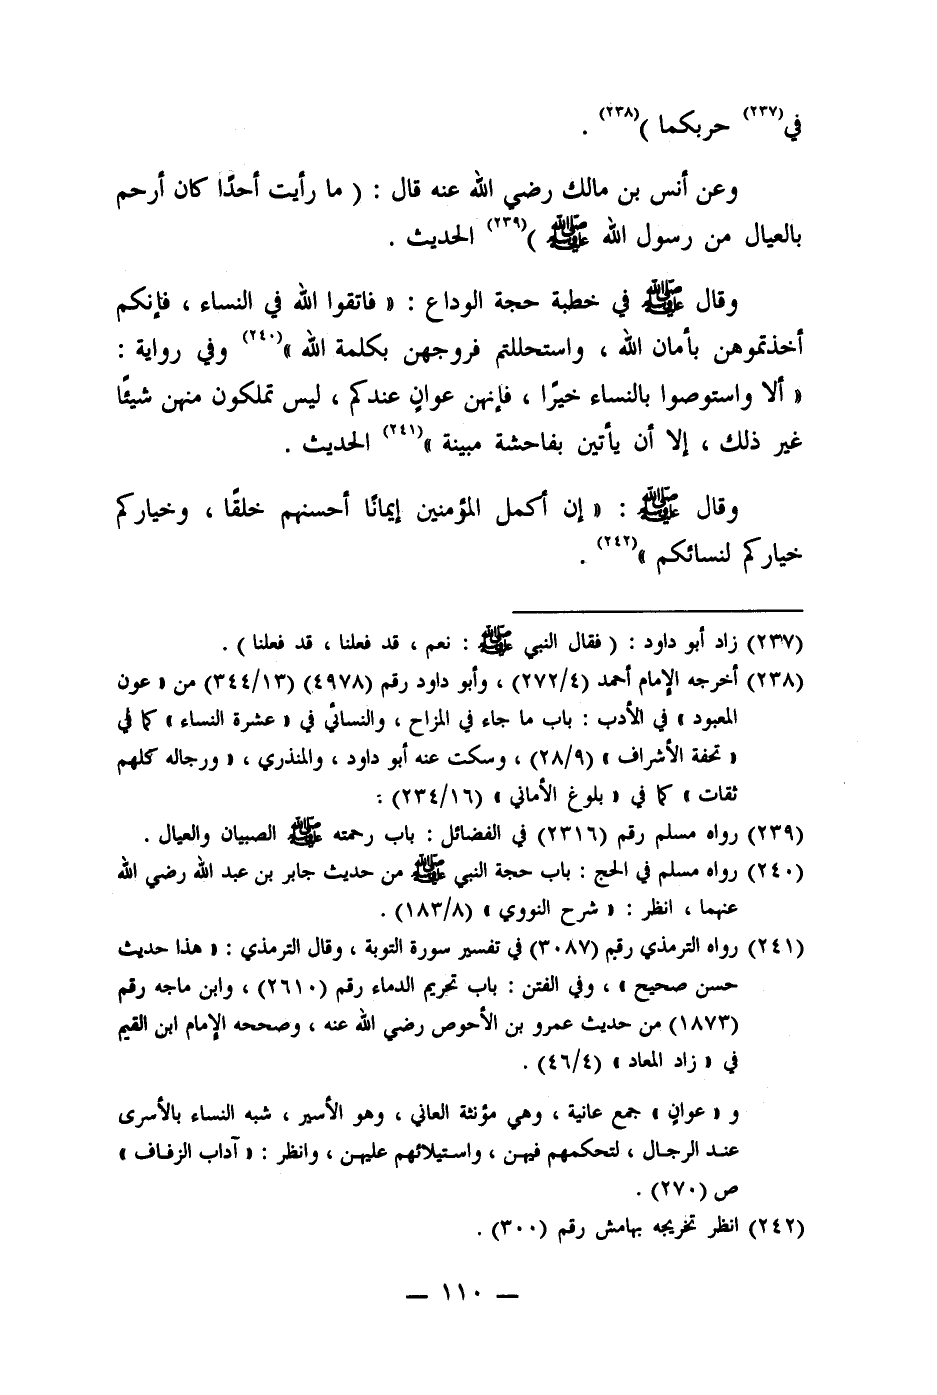 في(٢٣٧) حربكما )(٢٣٨) .
وعن أنس بن مالك رضي الله عنه قال : ( ما رأيت أحدًا كان أرحم
بالعيال من رسول الله ﷺ )(٢٣٩) الحديث .
وقال ﷺ في خطبة حجة الوداع : « فاتقوا الله في النساء ، فإنكم
أخذتموهن بأمان الله ، واستحللتم فروجهن بكلمة الله »(٢٤٠) وفي رواية :
« ألا واستوصوا بالنساء خيرًا ، فإنهن عوانٍ عندكم ، ليس تملكون منهن شيئًا
غير ذلك ، إلا أن يأتين بفاحشة مبينة »(٢٤١) الحديث .
وقال ﷺ : « إن أكمل المؤمنين إيمانًا أحسنهم خلقًا ، وخياركم
خياركم لنسائكم »(٢٤٢) .
(٢٣٧) زاد أبو داود : ( فقال النبي ﷺ : نعم ، قد فعلنا ، قد فعلنا ) .
(٢٣٨) أخرجه الإمام أحمد (٢٧٢/٤) ، وأبو داود رقم (٤٩٧٨) (٣٤٤/١٣) من « عون
المعبود » في الأدب : باب ما جاء في المزاح ، والنسائي في « عشرة النساء » كما في
« تحفة الأشراف » (٢٨/٩) ، وسكت عنه أبو داود ، والمنذري ، « ورجاله كلهم
ثقات » كما في « بلوغ الأماني » (٢٣٤/١٦) :
(٢٣٩) رواه مسلم رقم (٢٣١٦) في الفضائل : باب رحمته ﷺ الصبيان والعيال .
(٢٤٠) رواه مسلم في الحج : باب حجة النبي ﷺ من حديث جابر بن عبد الله رضي الله
عنهما ، انظر : « شرح النووي » (١٨٣/٨) .
(٢٤١) رواه الترمذي رقم (٣٠٨٧) في تفسير سورة التوبة ، وقال الترمذي : « هذا حديث
حسن صحيح » ، وفي الفتن : باب تحريم الدماء رقم (٢٦١٠) ، وابن ماجه رقم
(١٨٧٣) من حديث عمرو بن الأحوص رضي الله عنه ، وصححه الإمام ابن القيم
في « زاد المعاد » (٤٦/٤) .
و « عوانٍ » جمع عانية ، وهي مؤنثة العاني ، وهو الأسير ، شبه النساء بالأسرى
عند الرجال ، لتحكمهم فيهن ، واستيلائهم عليهن ، وانظر : « آداب الزفاف »
ص (٢٧٠) .
(٢٤٢) انظر تخريجه بهامش رقم (٣٠٠) .
— ١١٠ —